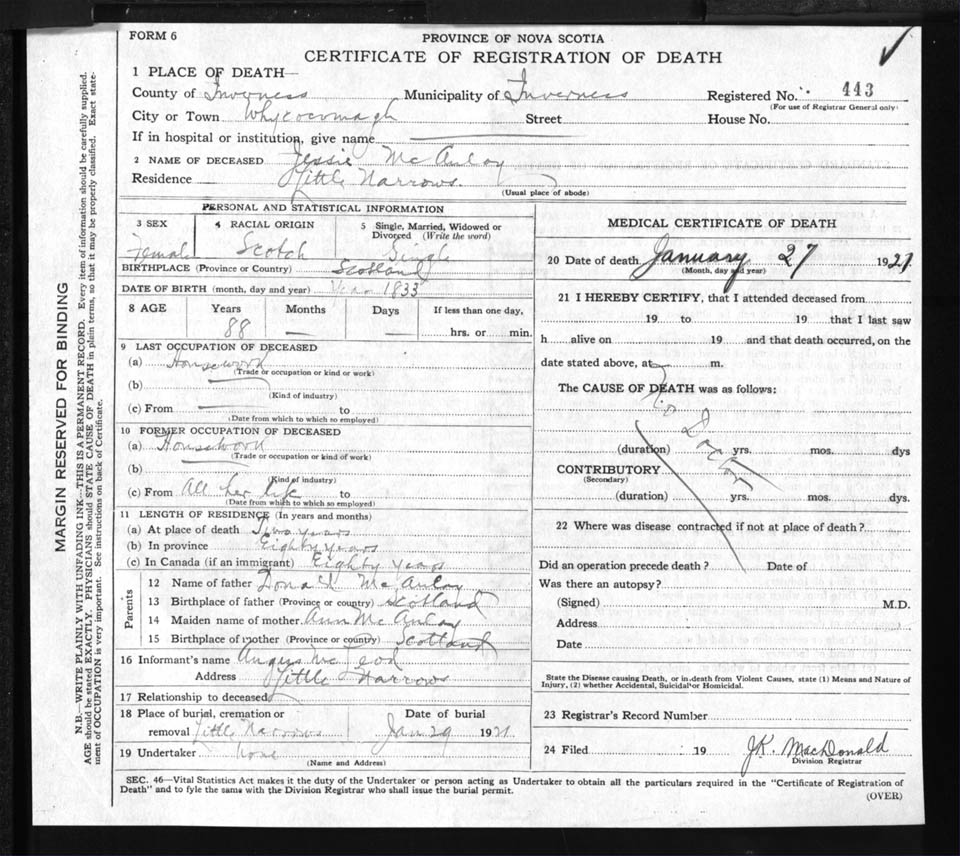 FORM 6
PROVINCE OF NOVA SCOTIA
CERTIFICATE OF REGISTRATION OF DEATH
1 PLACE OF DEATH—
County of Inverness Municipality of Inverness Registered No. 443
(For use of Registrar General only)
City or Town Whycocomagh Street House No.
If in hospital or institution, give name
2 NAME OF DECEASED Jessie McAulay
Residence Little Narrows
(Usual place of abode)
PERSONAL AND STATISTICAL INFORMATION
3 SEX 4 RACIAL ORIGIN 5 Single, Married, Widowed or
Divorced (Write the word)
Female Scotch Single
BIRTHPLACE (Province or Country) Scotland
DATE OF BIRTH (month, day and year) Year 1833
8 AGE Years Months Days If less than one day,
88 — — hrs. or min.
9 LAST OCCUPATION OF DECEASED
(a) Housework
(Trade or occupation or kind or work)
(b)
(Kind of industry)
(c) From to
(Date from which to which so employed)
10 FORMER OCCUPATION OF DECEASED
(a) Housework
(Trade or occupation or kind of work)
(b)
(Kind of industry)
(c) From All her life to
(Date from which to which so employed)
11 LENGTH OF RESIDENCE (In years and months)
(a) At place of death Two years
(b) In province Eighty years
(c) In Canada (if an immigrant) Eighty years
Parents
12 Name of father Donald McAulay
13 Birthplace of father (Province or country) Scotland
14 Maiden name of mother Ann McAulay
15 Birthplace of mother (Province or country) Scotland
16 Informant's name Angus McLeod
Address Little Narrows
17 Relationship to deceased
18 Place of burial, cremation or Date of burial
removal Little Narrows Jan 29 1921
19 Undertaker none
(Name and Address)
MEDICAL CERTIFICATE OF DEATH
20 Date of death January 27 1921
(Month, day and year)
21 I HEREBY CERTIFY, that I attended deceased from
19 to 19 that I last saw
h alive on 19 and that death occurred, on the
date stated above, at m.
The CAUSE OF DEATH was as follows:
No Doctor
(duration) yrs. mos. dys
CONTRIBUTORY
(Secondary)
(duration) yrs. mos. dys.
22 Where was disease contracted if not at place of death?
Did an operation precede death? Date of
Was there an autopsy?
(Signed) M.D.
Address
Date
State the Disease causing Death, or in death from Violent Causes, state (1) Means and Nature of
Injury, (2) whether Accidental, Suicidal or Homicidal.
23 Registrar's Record Number
24 Filed 19 J.K. MacDonald
Division Registrar
SEC. 46—Vital Statistics Act makes it the duty of the Undertaker or person acting as Undertaker to obtain all the particulars required in the "Certificate of Registration of
Death" and to fyle the same with the Division Registrar who shall issue the burial permit.
(OVER)
MARGIN RESERVED FOR BINDING
N.B.—WRITE PLAINLY WITH UNFADING INK—THIS IS A PERMANENT RECORD. Every item of information should be carefully supplied.
AGE should be stated EXACTLY. PHYSICIANS should STATE CAUSE OF DEATH in plain terms, so that it may be properly classified. Exact state-
ment of OCCUPATION is very important. See instructions on back of Certificate.